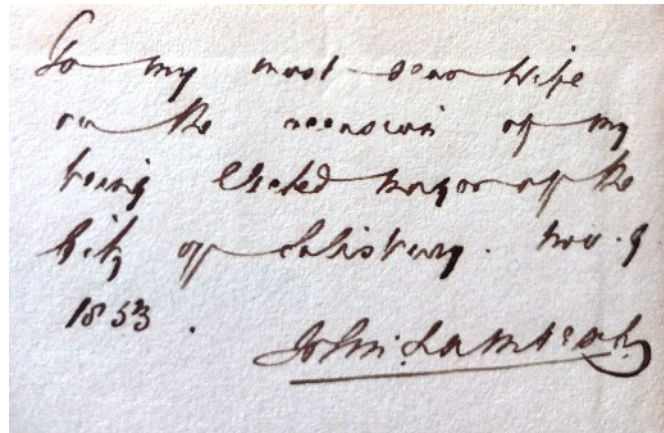 To my most dear Wife
on the occasion of my
being Elected Mayor of the
City of Salisbury. Nov. 9
1853.
John Lambert